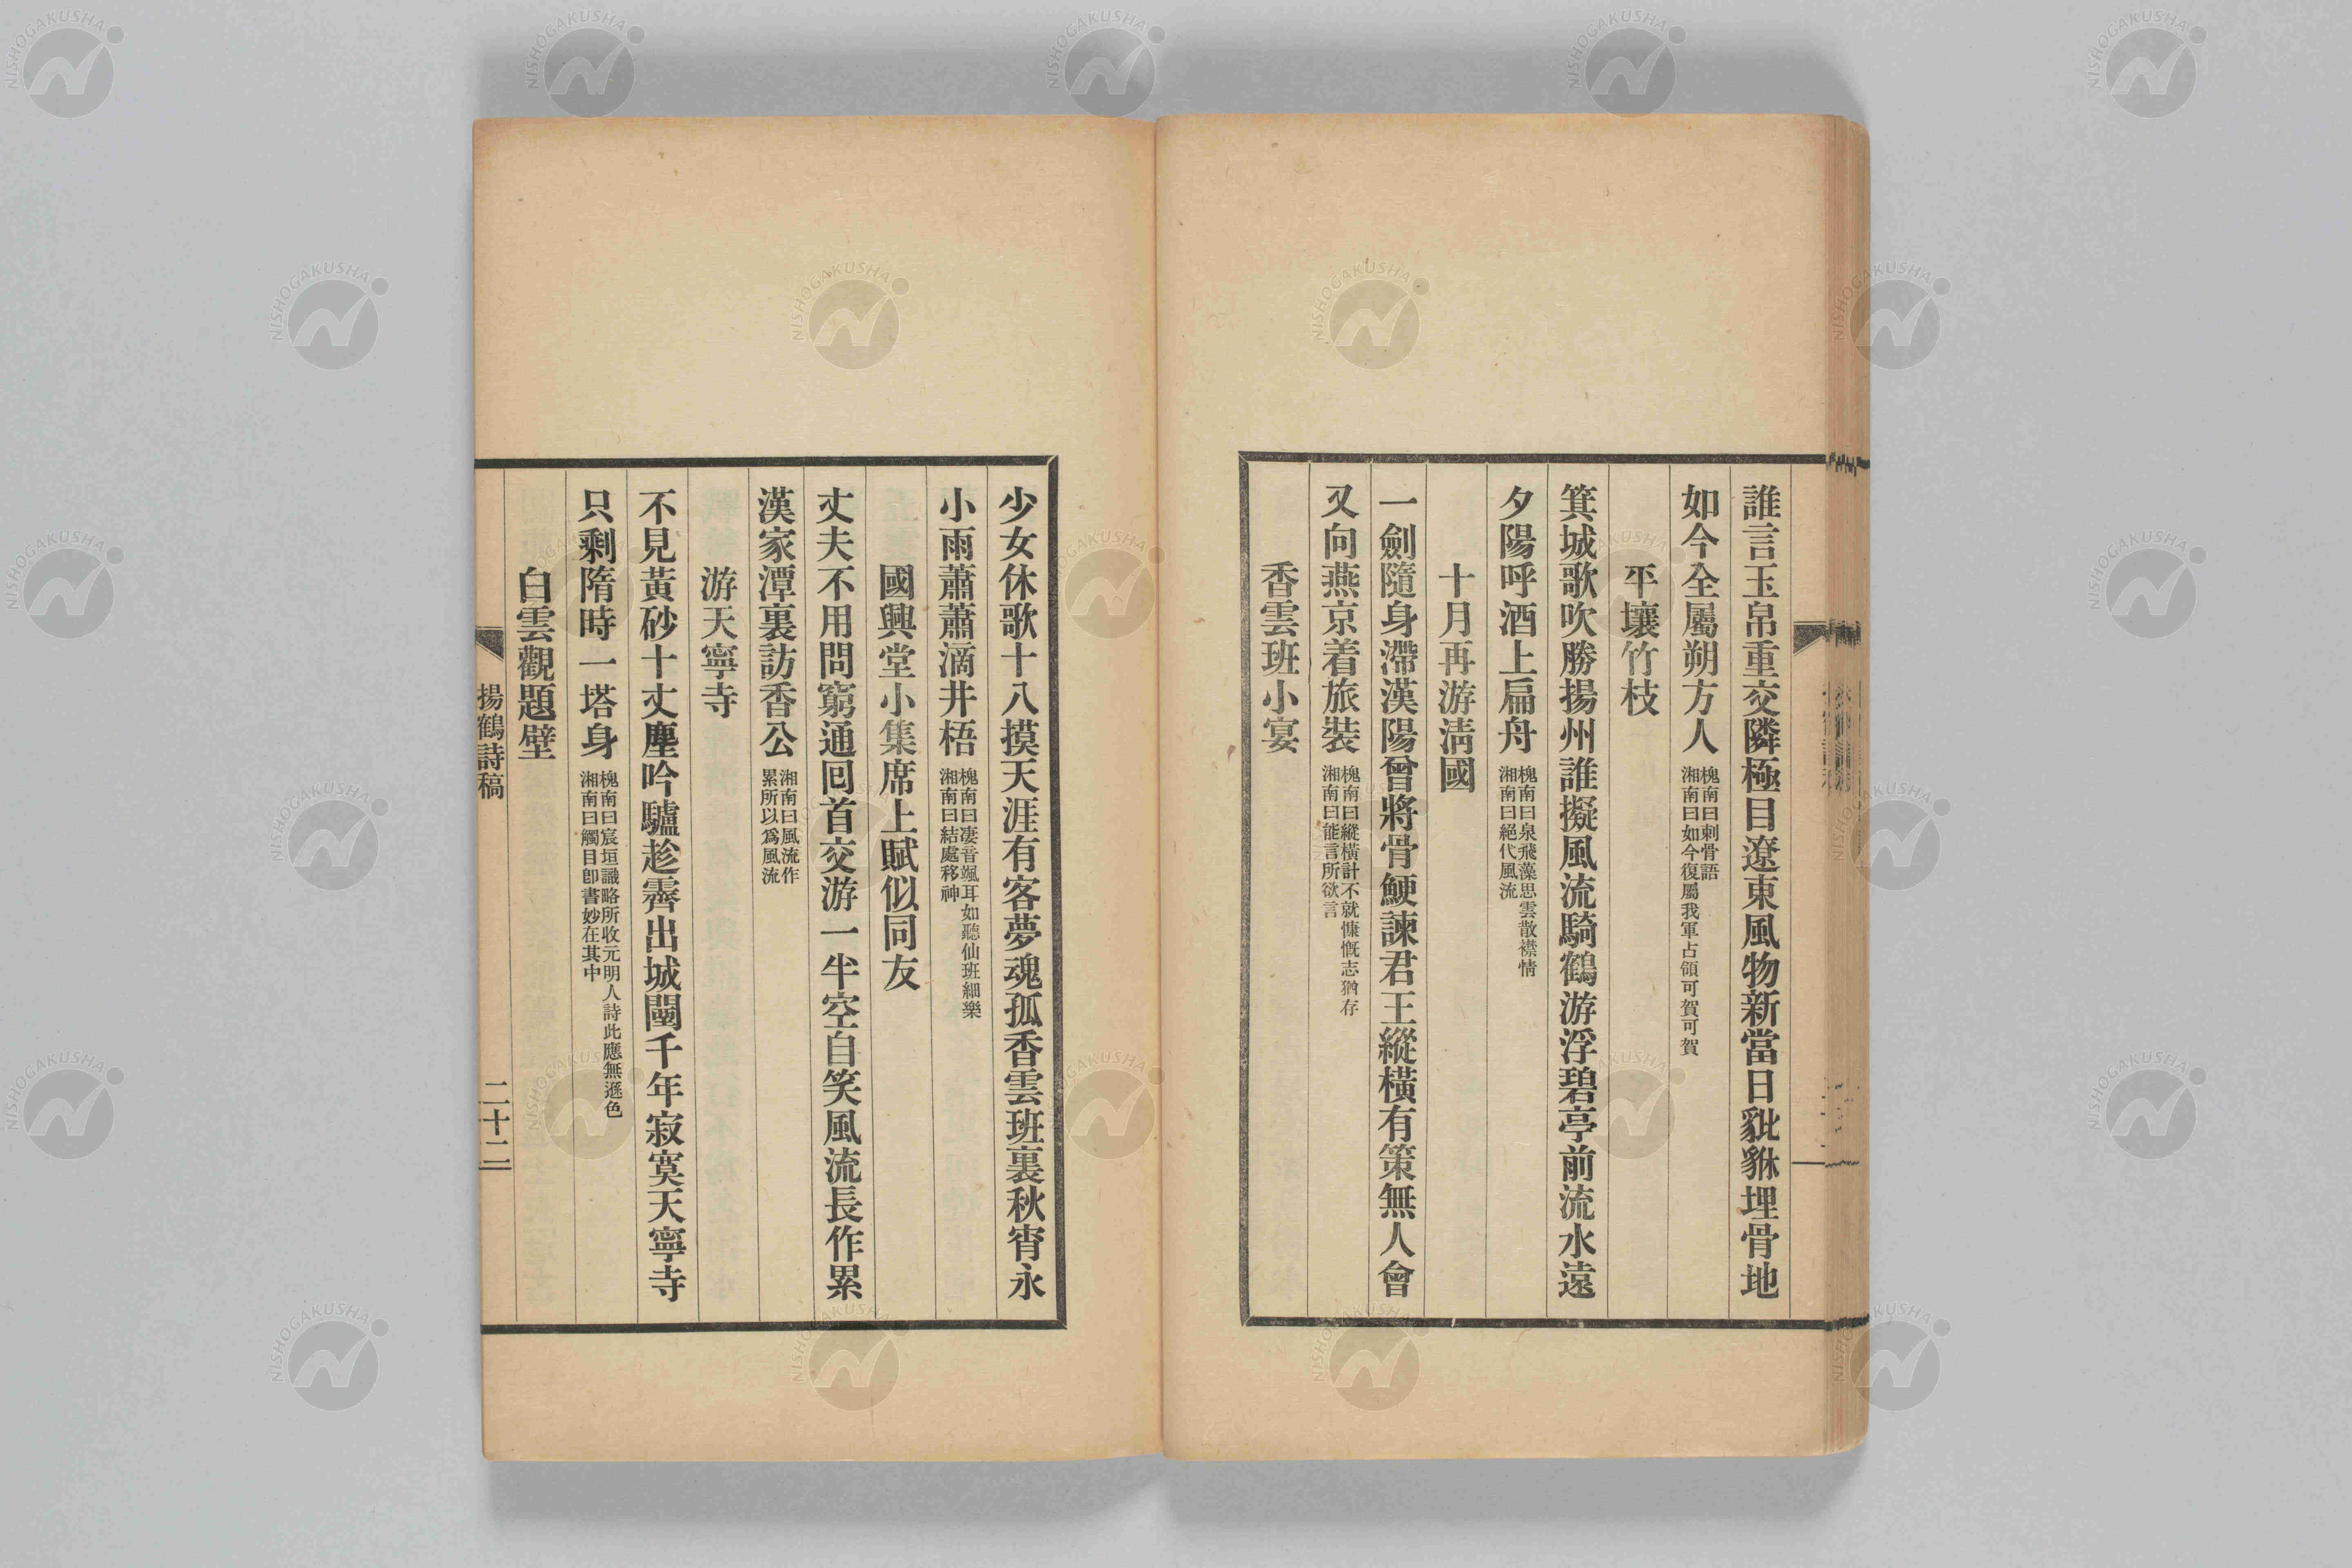 誰言玉帛重交隣極目遼東風物新當日貔貅埋骨地
如今全屬朔方人
槐南曰刺骨語
湘南曰如今復屬我軍占領可賀可賀
平壤竹枝
箕城歌吹勝揚州誰擬風流騎鶴游浮碧亭前流水遠
夕陽呼酒上扁舟
槐南曰泉飛藻思雲散襟情
湘南曰絕代風流
十月再游淸國
一劍隨身滯漢陽曾將骨鯁諫君王縱橫有策無人會
又向燕京着旅裝
槐南曰縱橫計不就慷慨志猶存
湘南曰能言所欲言
香雲班小宴
少女休歌十八摸天涯有客夢魂孤香雲班裏秋宵永
小雨蕭蕭滴井梧
槐南曰凄音颯耳如聽仙班細樂
湘南曰結處移神
國興堂小集席上賦似同友
丈夫不用問窮通回首交游一半空自笑風流長作累
漢家潭裏訪香公
湘南曰風流作
累所以爲風流
游天寧寺
不見黃砂十丈塵吟驢趁霽出城闉千年寂寞天寧寺
只剩隋時一塔身
槐南曰宸垣識略所收元明人詩此應無遜色
湘南曰觸目卽書妙在其中
白雲觀題壁
揚鶴詩稿
二十二
NISHOGAKUSHA